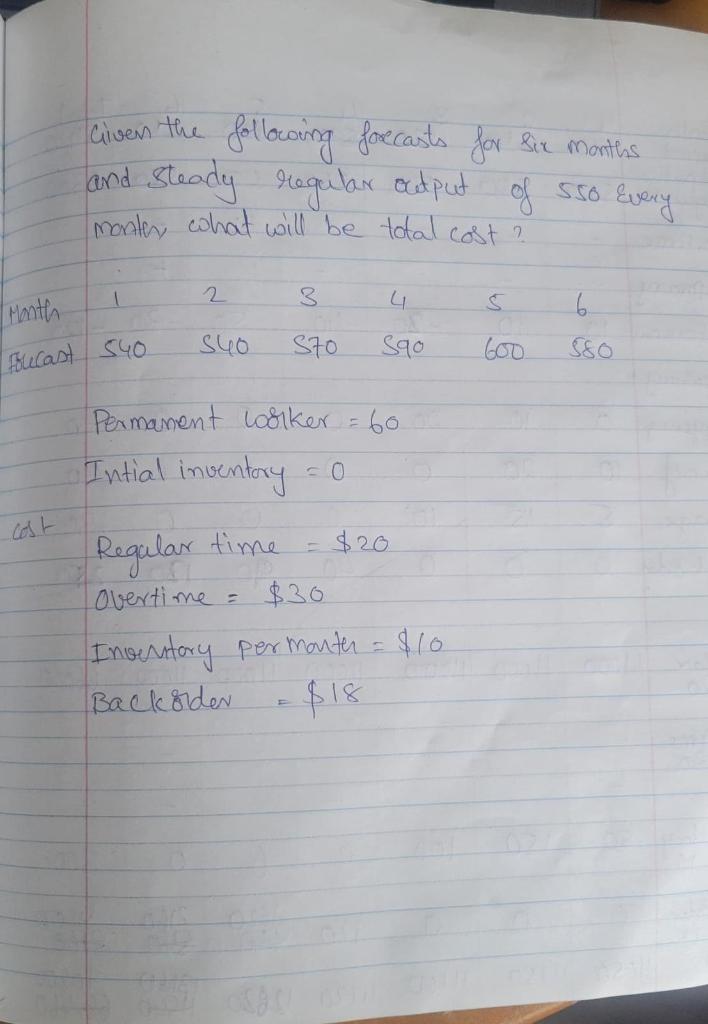 Given the following forecasts for six months
and steady regular output of 550 every
month, what will be total cost ?
Month 1 2 3 4 5 6
Forecast 540 540 570 590 600 580
Permanent worker = 60
Intial inventory = 0
cost
Regular time = $20
Overtime = $30
Inventory per month = $10
Backorder = $18